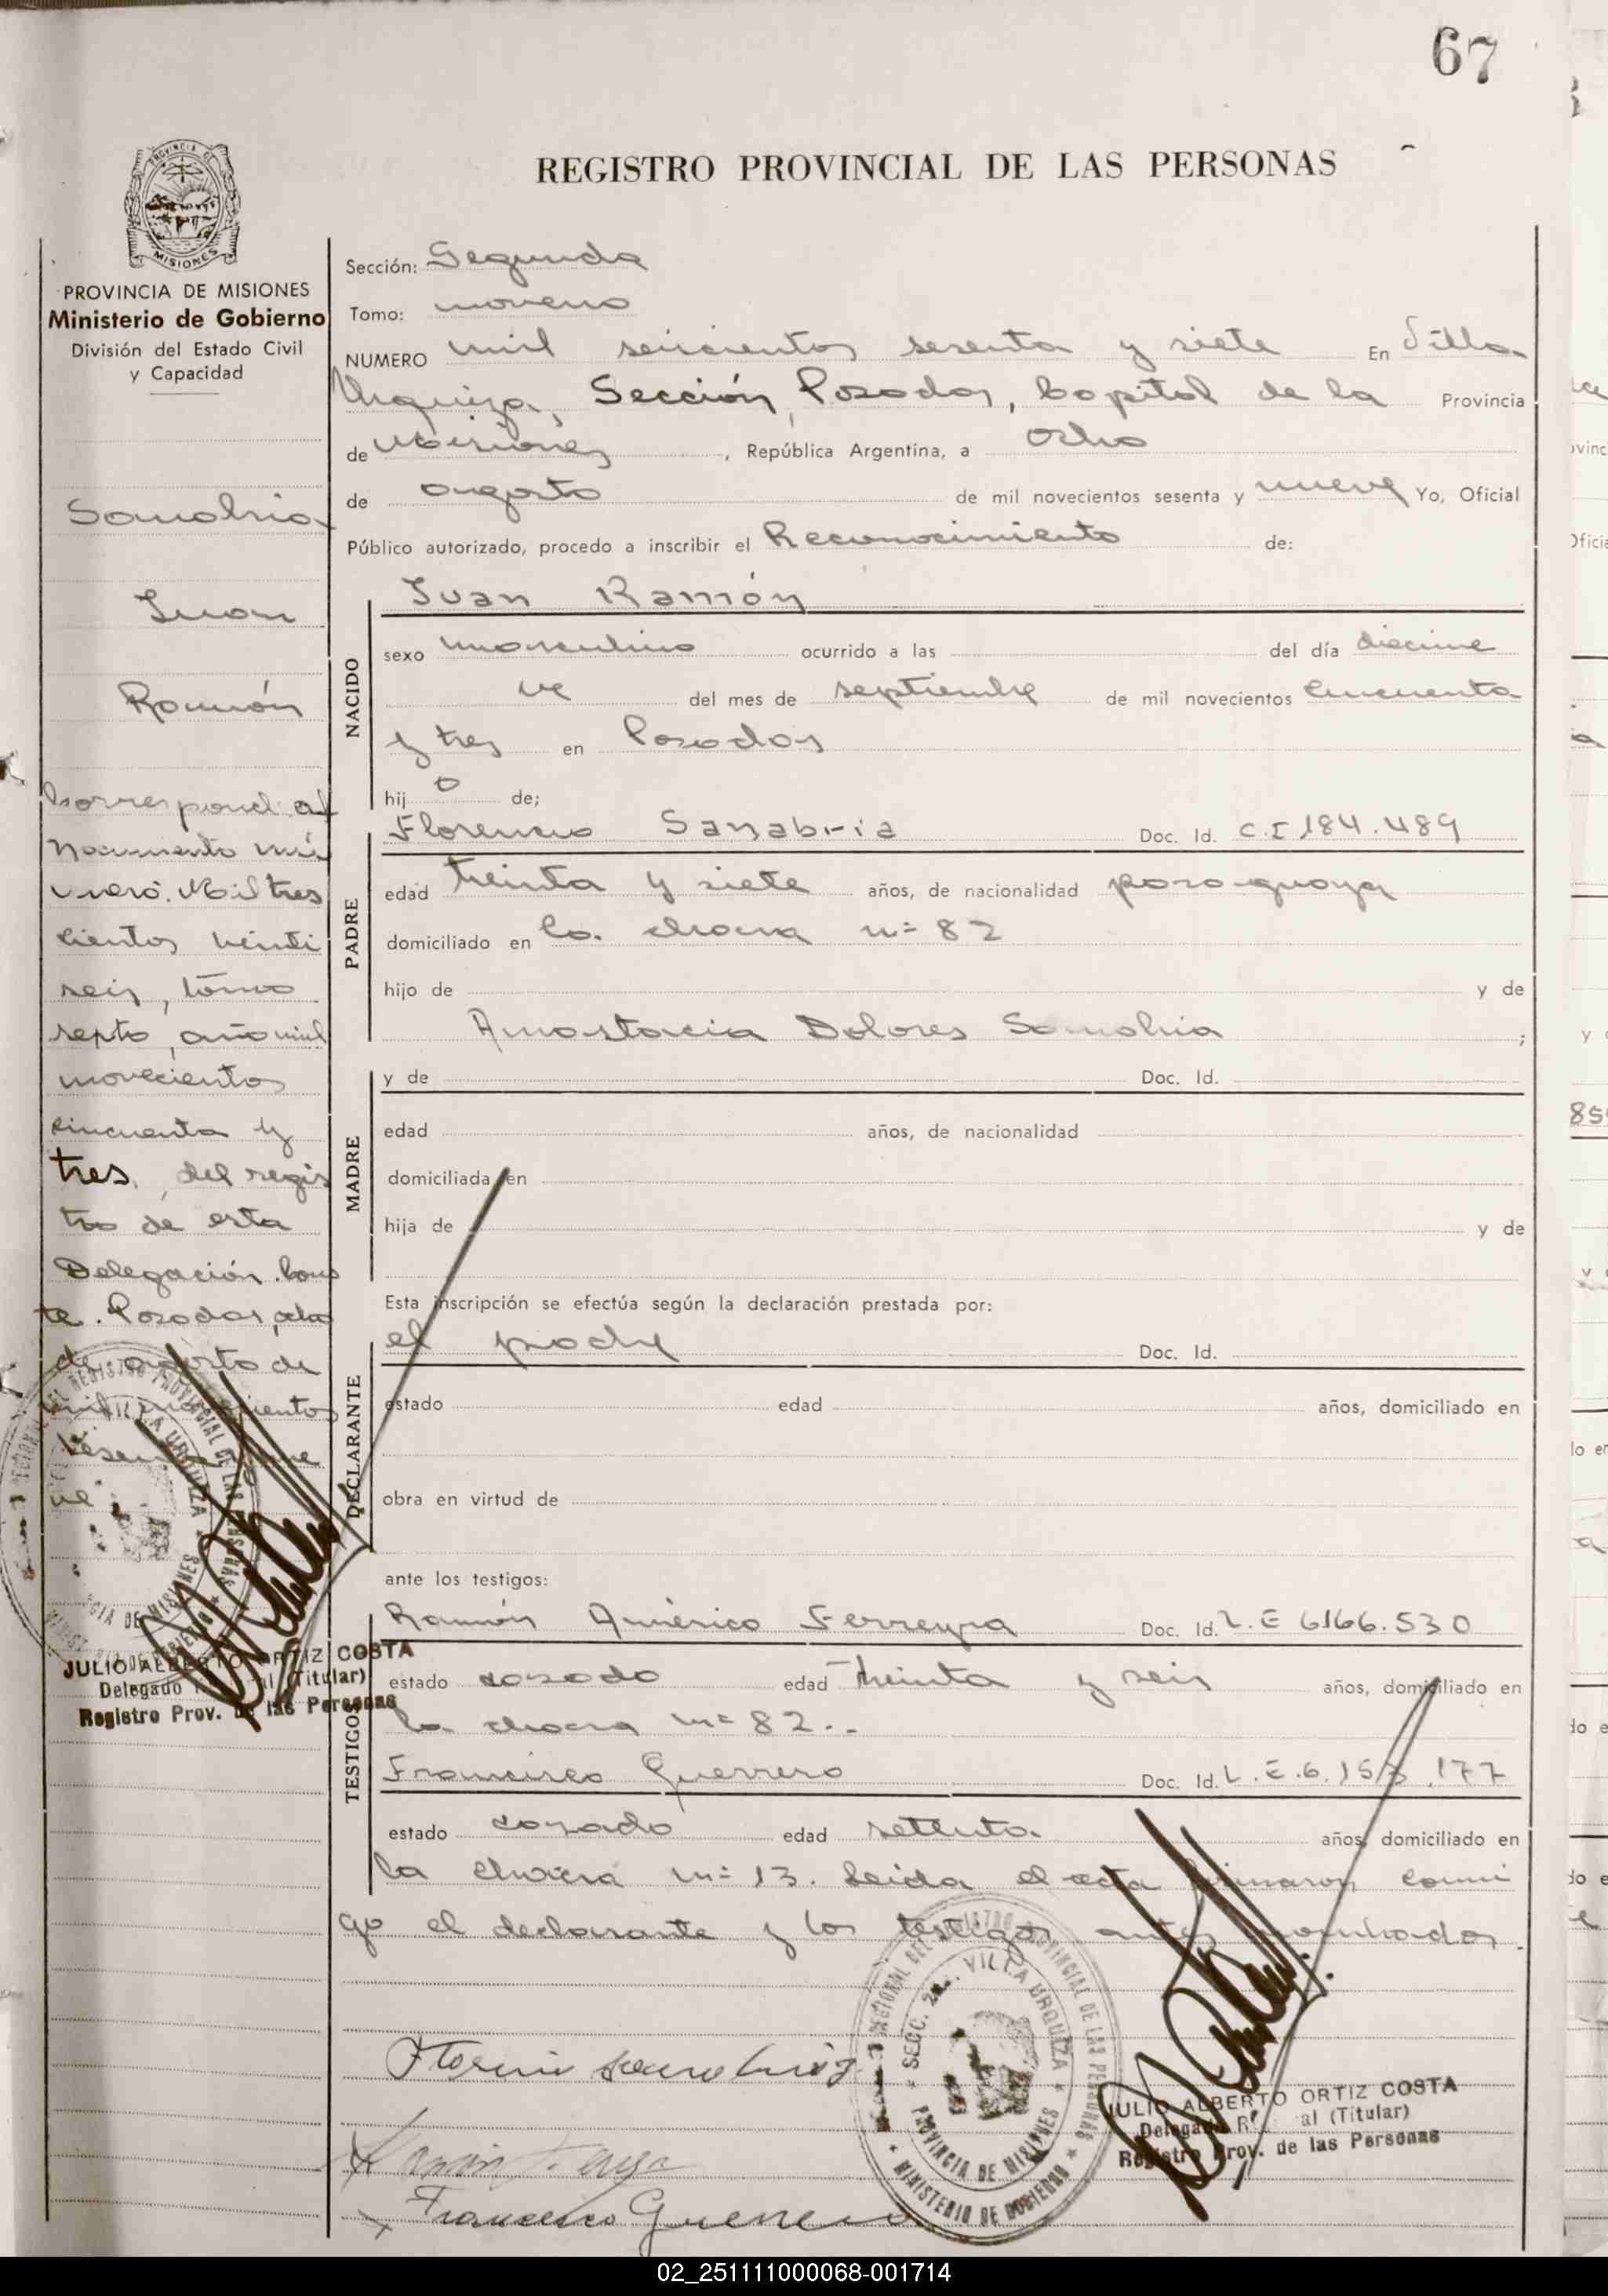 67
REGISTRO PROVINCIAL DE LAS PERSONAS
PROVINCIA DE
MISIONES
PROVINCIA DE MISIONES
Ministerio de Gobierno
División del Estado Civil
y Capacidad
Sanabria
Juan
Ramón
Correspond. al
Nacimiento nú
mero. Mil tres
cientos veinti
seis, tomo
septo, año mil
novecientos
cincuenta y
tres, del regis
tro de esta
Delegación. Cons
te. Posadas, ocho
de agosto de
mil novecientos
sesenta y nue
ve
JULIO ALBERTO ORTIZ COSTA
Delegado (Titular)
Registro Prov. de las Personas
Sección: Segunda
Tomo: noveno
NUMERO mil seiscientos sesenta y siete En Villa
Urquiza, Sección, Posadas, Capital de la Provincia
de Misiones, República Argentina, a ocho
de agosto de mil novecientos sesenta y nueve Yo, Oficial
Público autorizado, procedo a inscribir el Reconocimiento de:
NACIDO
Juan Ramón
sexo masculino ocurrido a las del día diecinue
ve del mes de septiembre de mil novecientos cincuenta
y tres en Posadas
hijo de;
PADRE
Florencio Sanabria Doc. Id. C.I 184.489
edad treinta y siete años, de nacionalidad paraguaya
domiciliado en la chacra nº 82
hijo de y de
Anastacia Dolores Sanabria ;
MADRE
y de Doc. Id.
edad años, de nacionalidad
domiciliada en
hija de y de
Esta inscripción se efectúa según la declaración prestada por:
DECLARANTE
el padre Doc. Id.
estado edad años, domiciliado en
obra en virtud de
ante los testigos:
TESTIGOS
Ramón Américo Ferreyra Doc. Id. L.E 6166.530
estado casado edad treinta y seis años, domiciliado en
la chacra nº 82..
Francisco Guerrero Doc. Id. L.E.6.153.177
estado casado edad setenta años, domiciliado en
la chacra nº 13. Leida el acta firmaron conmi
go el declarante y los testigos antes nombrados.
SECC. 2a. VILLA URQUIZA
PROVINCIA DE MISIONES
MINISTERIO DE GOBIERNO
Francisco Guerrero
JULIO ALBERTO ORTIZ COSTA
Delegado (Titular)
Registro Prov. de las Personas
02_251111000068-001714